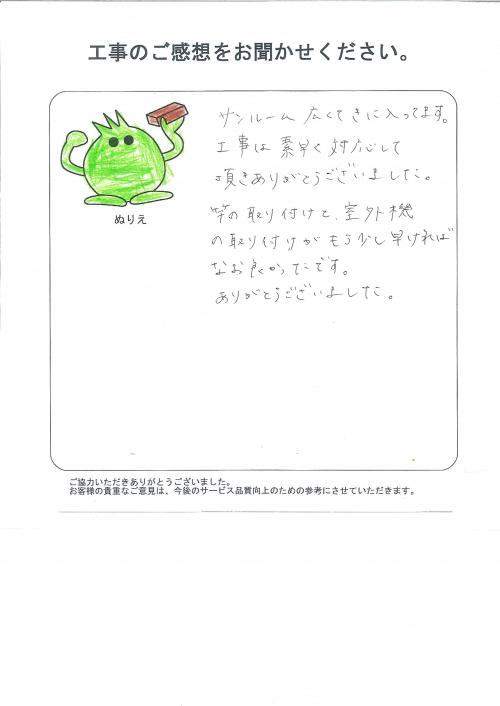 工事のご感想をお聞かせください。
サンルーム 広くてきに入ってます。
工事は素早く対応して
頂きありがとうございました。
竿の取り付けと、室外機
の取り付けがもう少し早ければ
なお良かったです。
ありがとうございました。
ぬりえ
ご協力いただきありがとうございました。
お客様の貴重なご意見は、今後のサービス品質向上のための参考にさせていただきます。